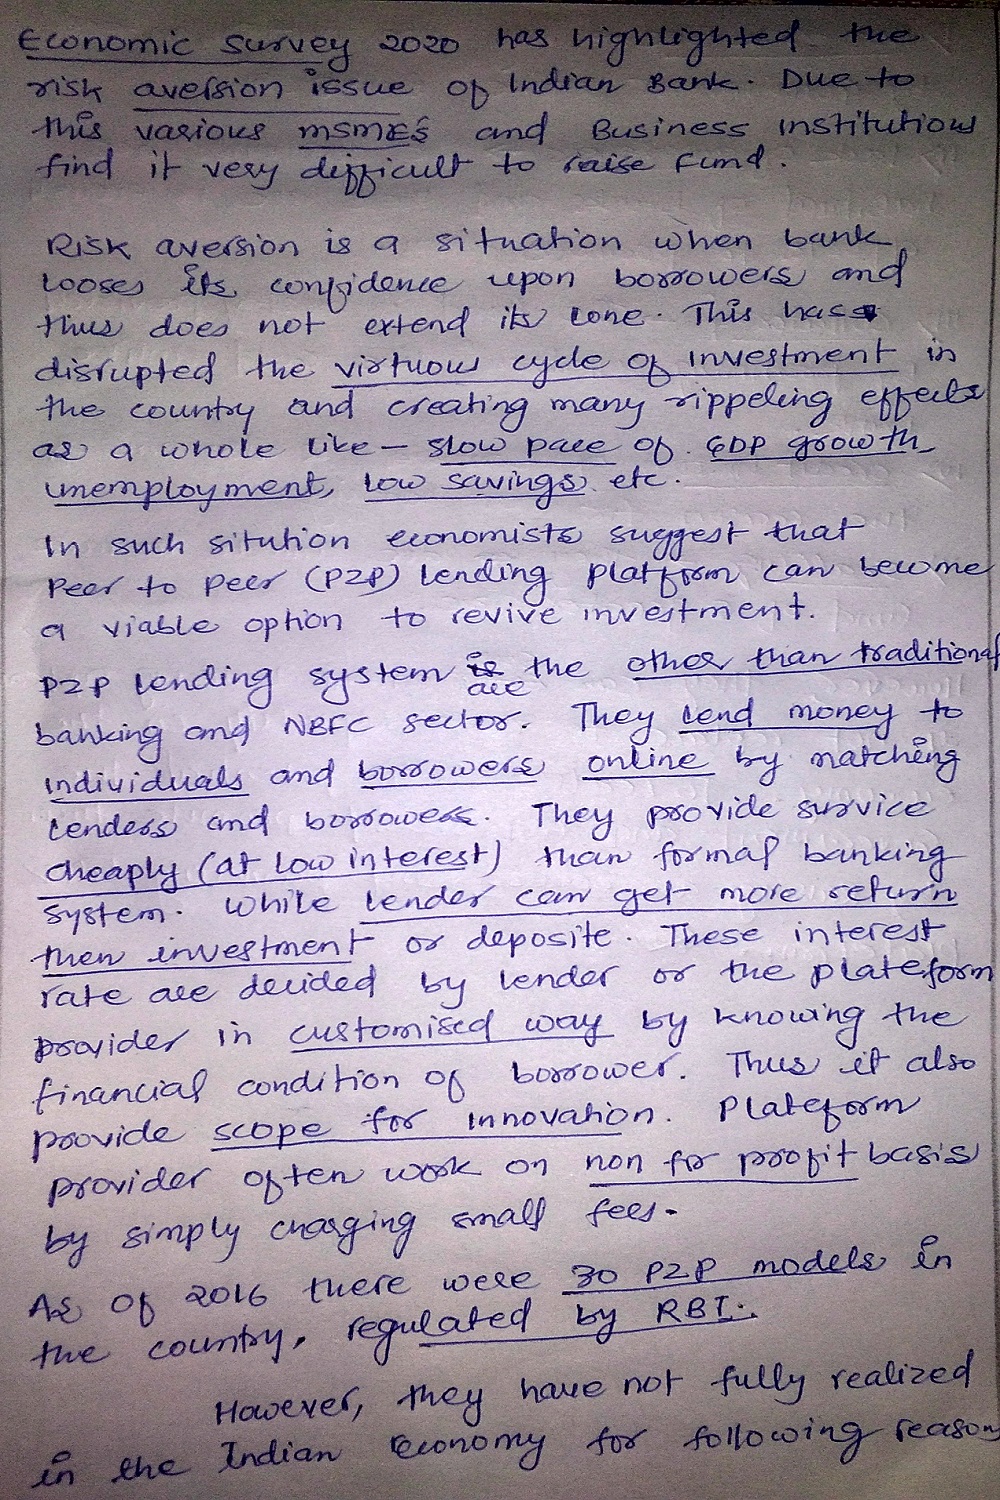 Economic survey 2020 has highlighted the
risk aversion issue of Indian Bank. Due to
this various MSMEs and Business institutions
find it very difficult to raise fund.
Risk aversion is a situation when bank
looses its confidence upon borrowers and
thus does not extend its lone. This has
disrupted the virtuous cycle of investment in
the country and creating many rippeling effects
as a whole like - slow pace of GDP growth,
unemployment, low savings etc.
In such sitution economists suggest that
Peer to Peer (P2P) lending platform can become
a viable option to revive investment.
P2P lending system are the other than traditional
banking and NBFC sector. They lend money to
individuals and borrowers online by matching
lenders and borrowers. They provide survice
cheaply (at low interest) than formal banking
system. While lender can get more return
then investment or deposite. These interest
rate are decided by lender or the plateform
provider in customised way by knowing the
financial condition of borrower. Thus it also
provide scope for innovation. Plateform
provider often work on non for profit basis
by simply charging small fees.
As of 2016 there were 30 P2P models in
the country, regulated by RBI.
However, they have not fully realized
in the Indian Economy for following reasons